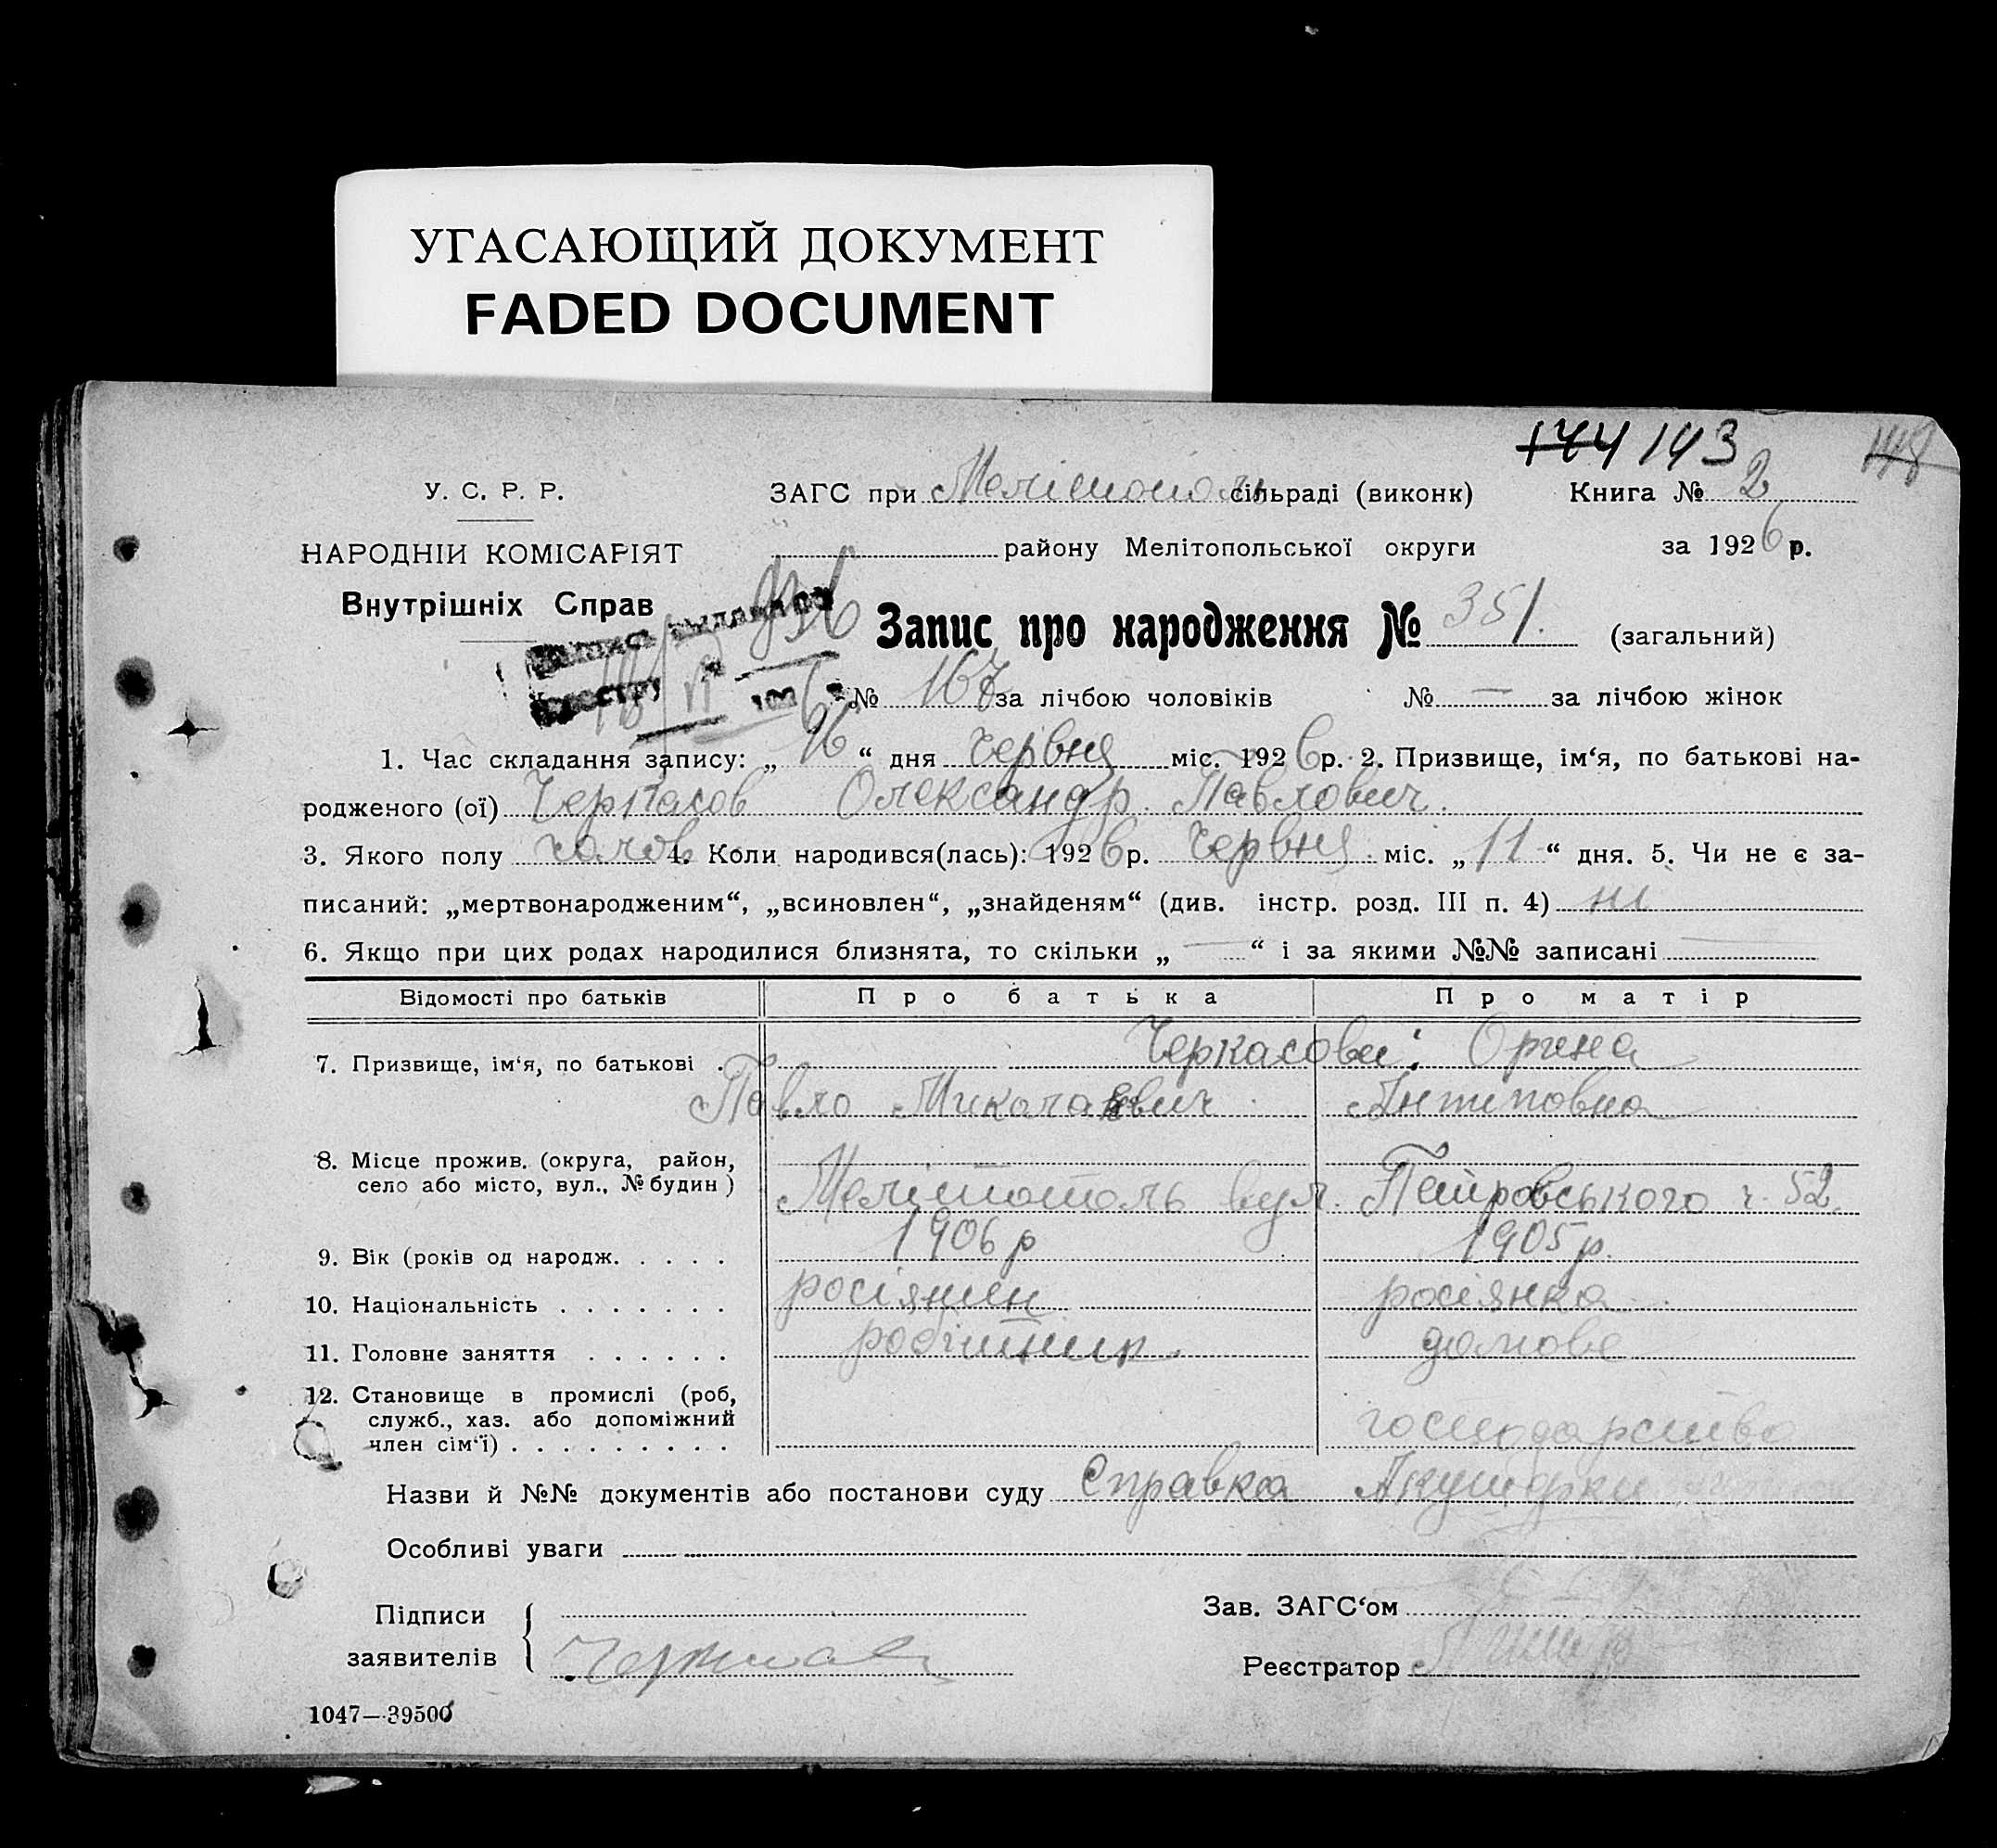 УГАСАЮЩИЙ ДОКУМЕНТ
FADED DOCUMENT
144 143
118
У. С. Р. Р.
ЗАГС при Мелітополь сільраді (виконк)
Книга № 2
НАРОДНІЙ КОМІСАРІЯТ
району Мелітопольської округи
за 1926 р.
Внутрішніх Справ
Запис про народження № 351. (загальний)
№ 167 за лічбою чоловіків № — за лічбою жінок
1. Час складання запису: „16“ дня червня міс. 1926 р. 2. Призвище, ім‘я, по батькові на-
родженого (ої) Черкасов Олександр Павлович.
3. Якого полу чолов 4. Коли народився(лась): 1926 р. червня міс. „11“ дня. 5. Чи не є за-
писаний: „мертвонародженим“, „всиновлен“, „знайденям“ (див. інстр. розд. III п. 4) ні
6. Якщо при цих родах народилися близнята, то скільки „—“ і за якими №№ записані
Відомості про батьків Про батька Про матір
7. Призвище, ім‘я, по батькові . Черкасови: Орина
Павло Миколаєвич Антиповна
8. Місце прожив. (округа, район,
село або місто, вул., № будин) Мелітополь вул. Петровського ч. 52.
9. Вік (років од народж. . . . . 1906 р 1905 р.
10. Національність . . . . . . . росіянин росіянка
11. Головне заняття . . . . . . робітник домове
12. Становище в промислі (роб,
служб., хаз. або допоміжний господарство
член сім‘ї) . . . . . . . . .
Назви й №№ документів або постанови суду Справка Акушерки
Особливі уваги
Підписи
заявителів
Зав. ЗАГС‘ом
Реєстратор
1047—39500